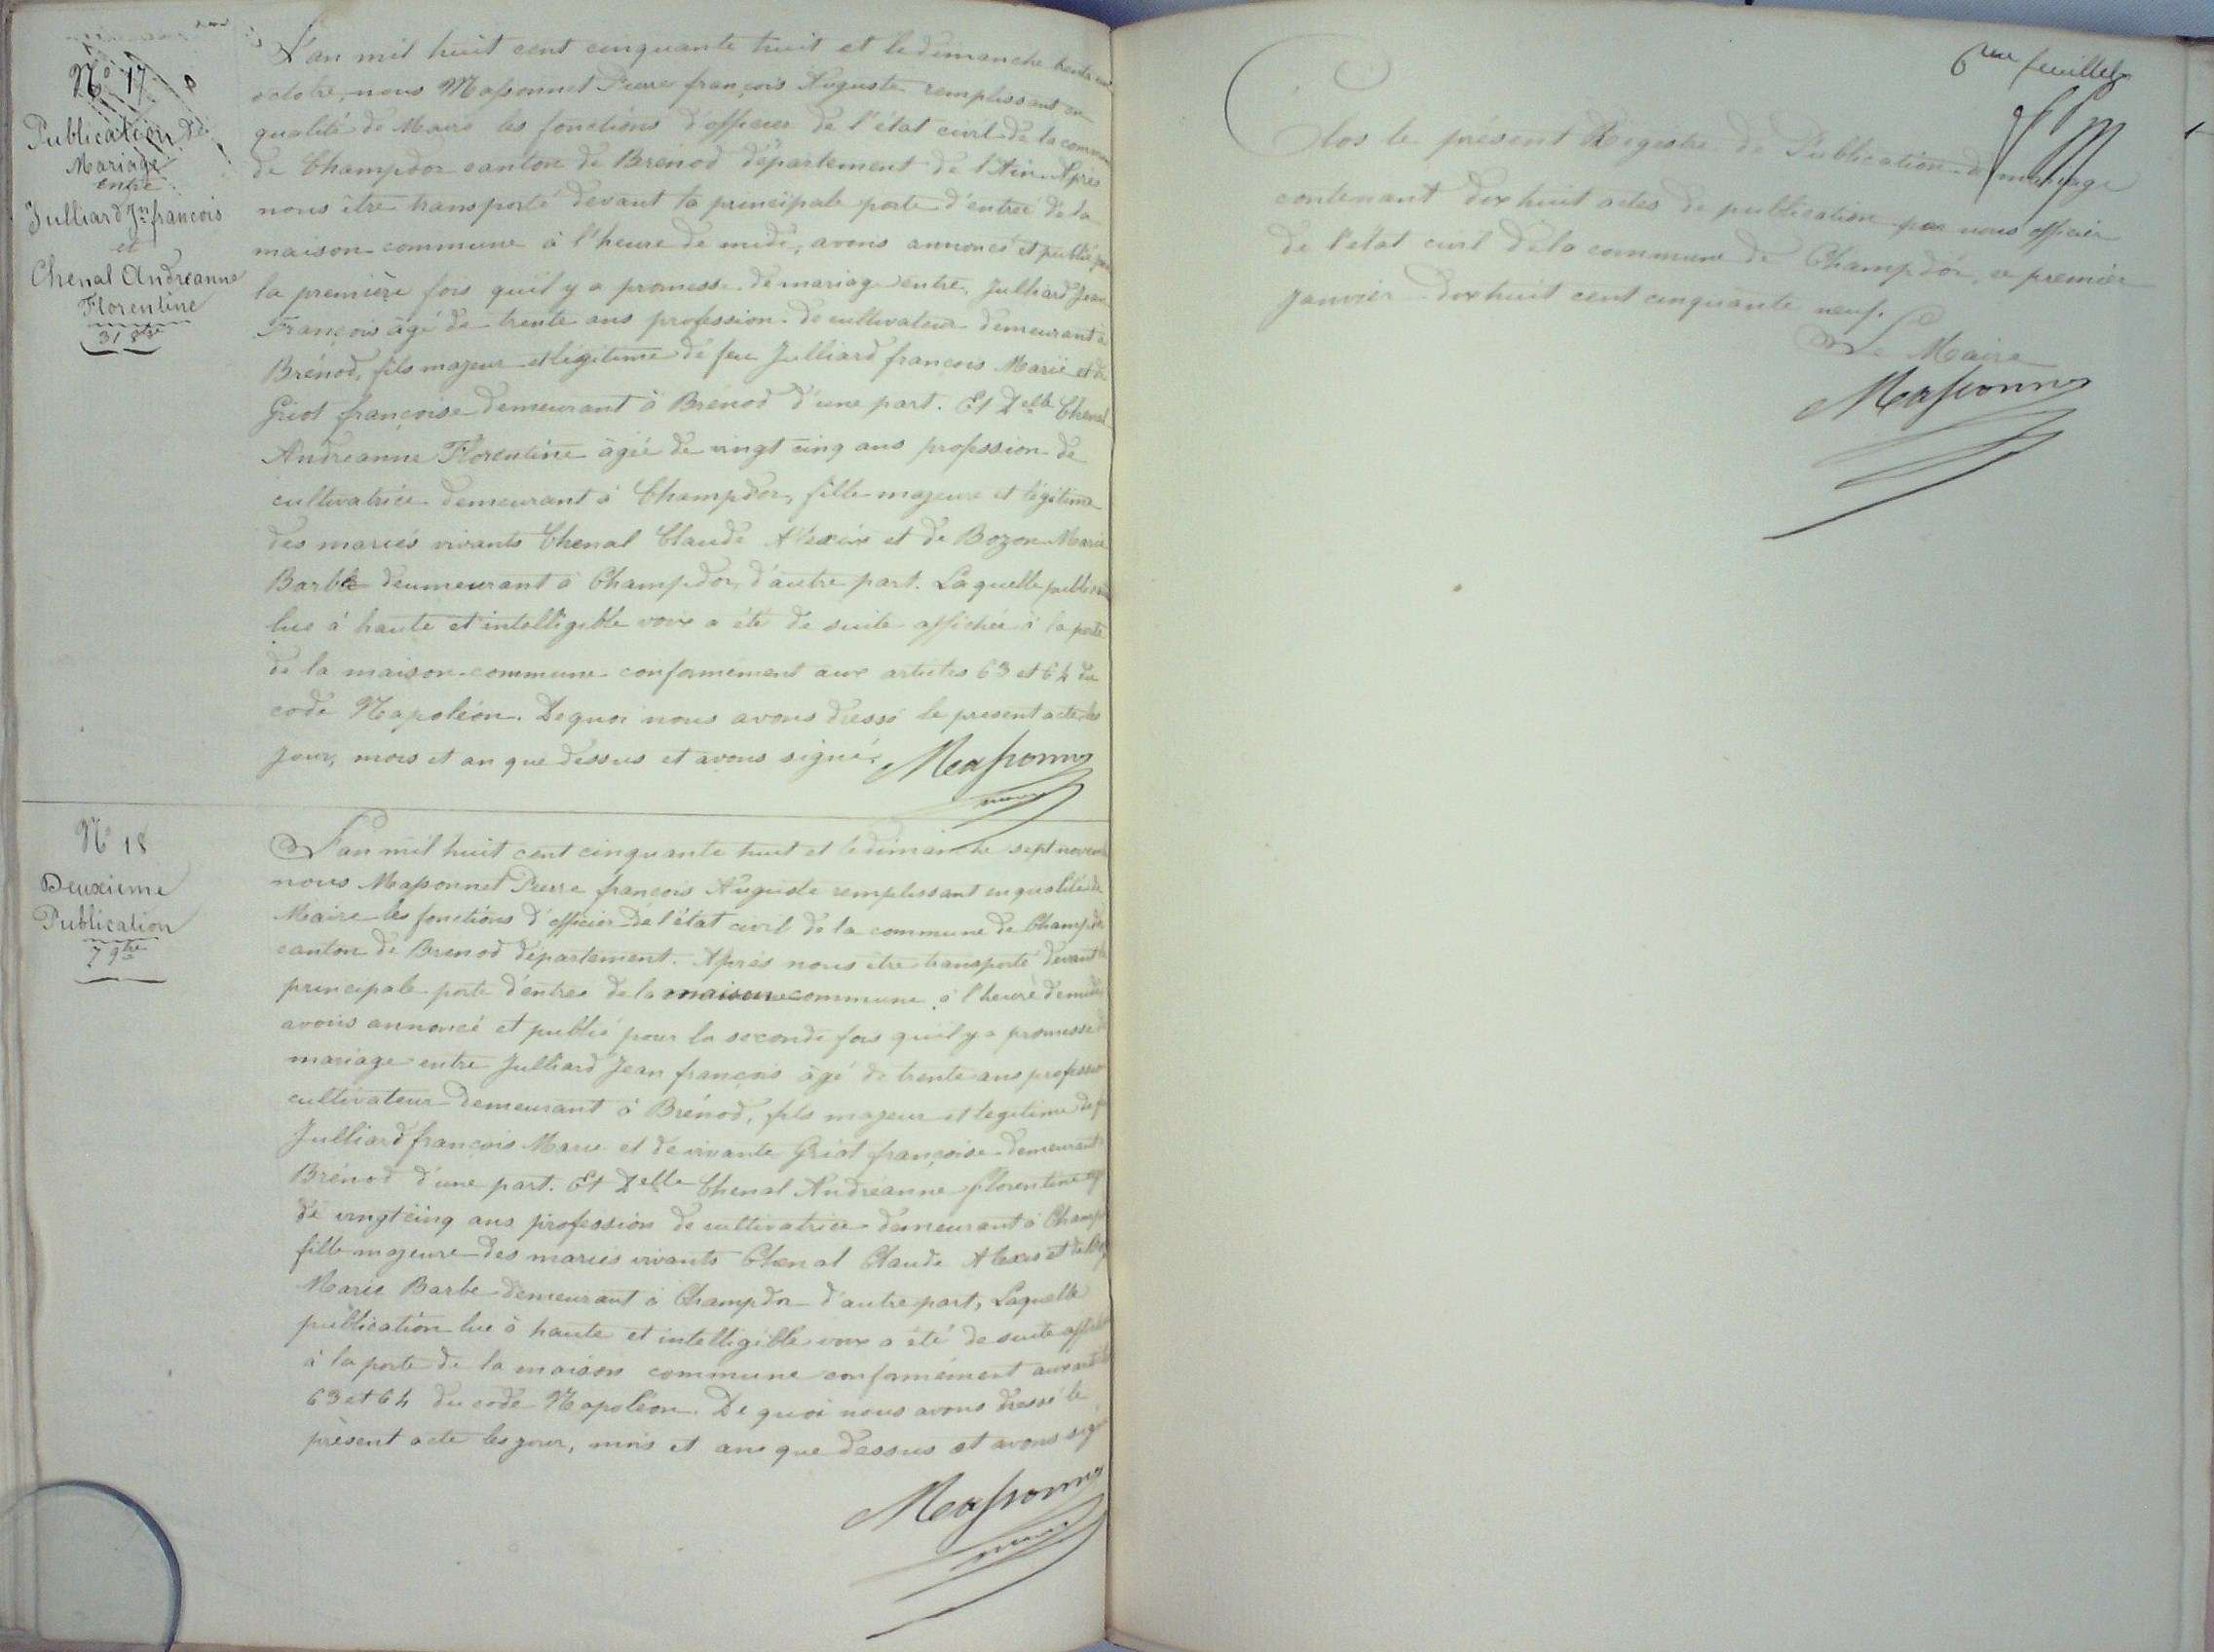 N° 17
Publication de
Mariage
entre
Julliard Jn françois
et
Chenal Andréanne
Florentine
31 8bre
L'an mil huit cent cinquante huit et le dimanche trente un
octobre, nous Massonnet Pierre françois Auguste remplissant en
qualité de Maire les fonctions d'officier de l'état civil de la commune
de Champdor canton de Brénod département de l'Ain. Après
nous être transporté devant la principale porte d'entrée de la
maison commune à l'heure de midi, avons annoncé et publié pour
la première fois qu'il y a promesse de mariage entre Julliard Jean
François âgé de trente ans profession de cultivateur demeurant à
Brénod, fils majeur et légitime de feu Julliard françois Marie et de
Griot françoise demeurant à Brénod d'une part. Et Delle Chenal
Andréanne Florentine âgée de vingt cinq ans profession de
cultivatrice demeurant à Champdor, fille majeure et légitime
des mariés vivants Chenal Claude Alexis et de Bozon Marie
Barbe deumeurant à Champdor, d'autre part. Laquelle publication
lue à haute et intelligible voix a été de suite affichée à la porte
de la maison commune conformément aux articles 63 et 64 du
code Napoléon. De quoi nous avons dressé le present acte les
jour, mois et an que dessus et avons signé.
Massonnet
N° 18
Deuxieme
Publication
7 9bre
L'an mil huit cent cinquante huit et le dimanche sept novembre
nous Massonnet Pierre françois Auguste remplissant en qualité de
Maire les fonctions d'officier de l'état civil de la commune de Champdor
canton de Brenod département. Après nous être transporté devant la
principale porte d'entrée de la maison commune à l'heure de midi
avons annoncé et publié pour la seconde fois qu'il y a promesse de
mariage entre Julliard Jean françois âgé de trente ans profession
cultivateur demeurant à Brénod, fils majeur et legitime de feu
Julliard françois Marie et de vivante Griot françoise demeurant à
Brénod d'une part. Et Delle Chenal Andréanne florentine agée
de vingt cinq ans profession de cultivatrice demeurant à Champdor
fille majeure des mariés vivants Chenal Claude Alexis et de Bozon
Marie Barbe demeurant à Champdor d'autre part, Laquelle
publication lue à haute et intelligible voix a été de suite affichée
à la porte de la maison commune conformément aux articles
63 et 64 du code Napoléon. De quoi nous avons dressé le
présent acte les jour, mois et ans que dessus et avons signé
Massonnet
6me feuillet
Clos le présent Régistre de Publication de mariage
contenant dix huit actes de publication par nous officier
de l'état civil de la commune de Champdor, ce premier
Janvier dix huit cent cinquante neuf.
Le Maire
Massonnet